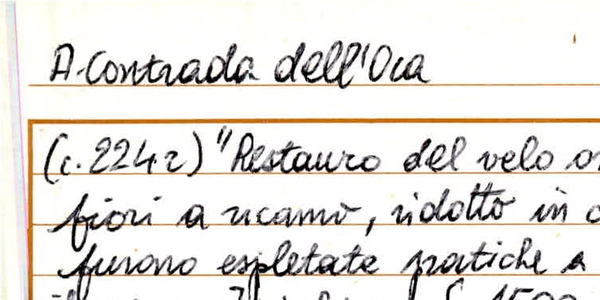 A. Contrada dell'Oca
(c. 224 r) "Restauro del velo
fiori a ricamo, ridotto in
furono espletate pratiche a